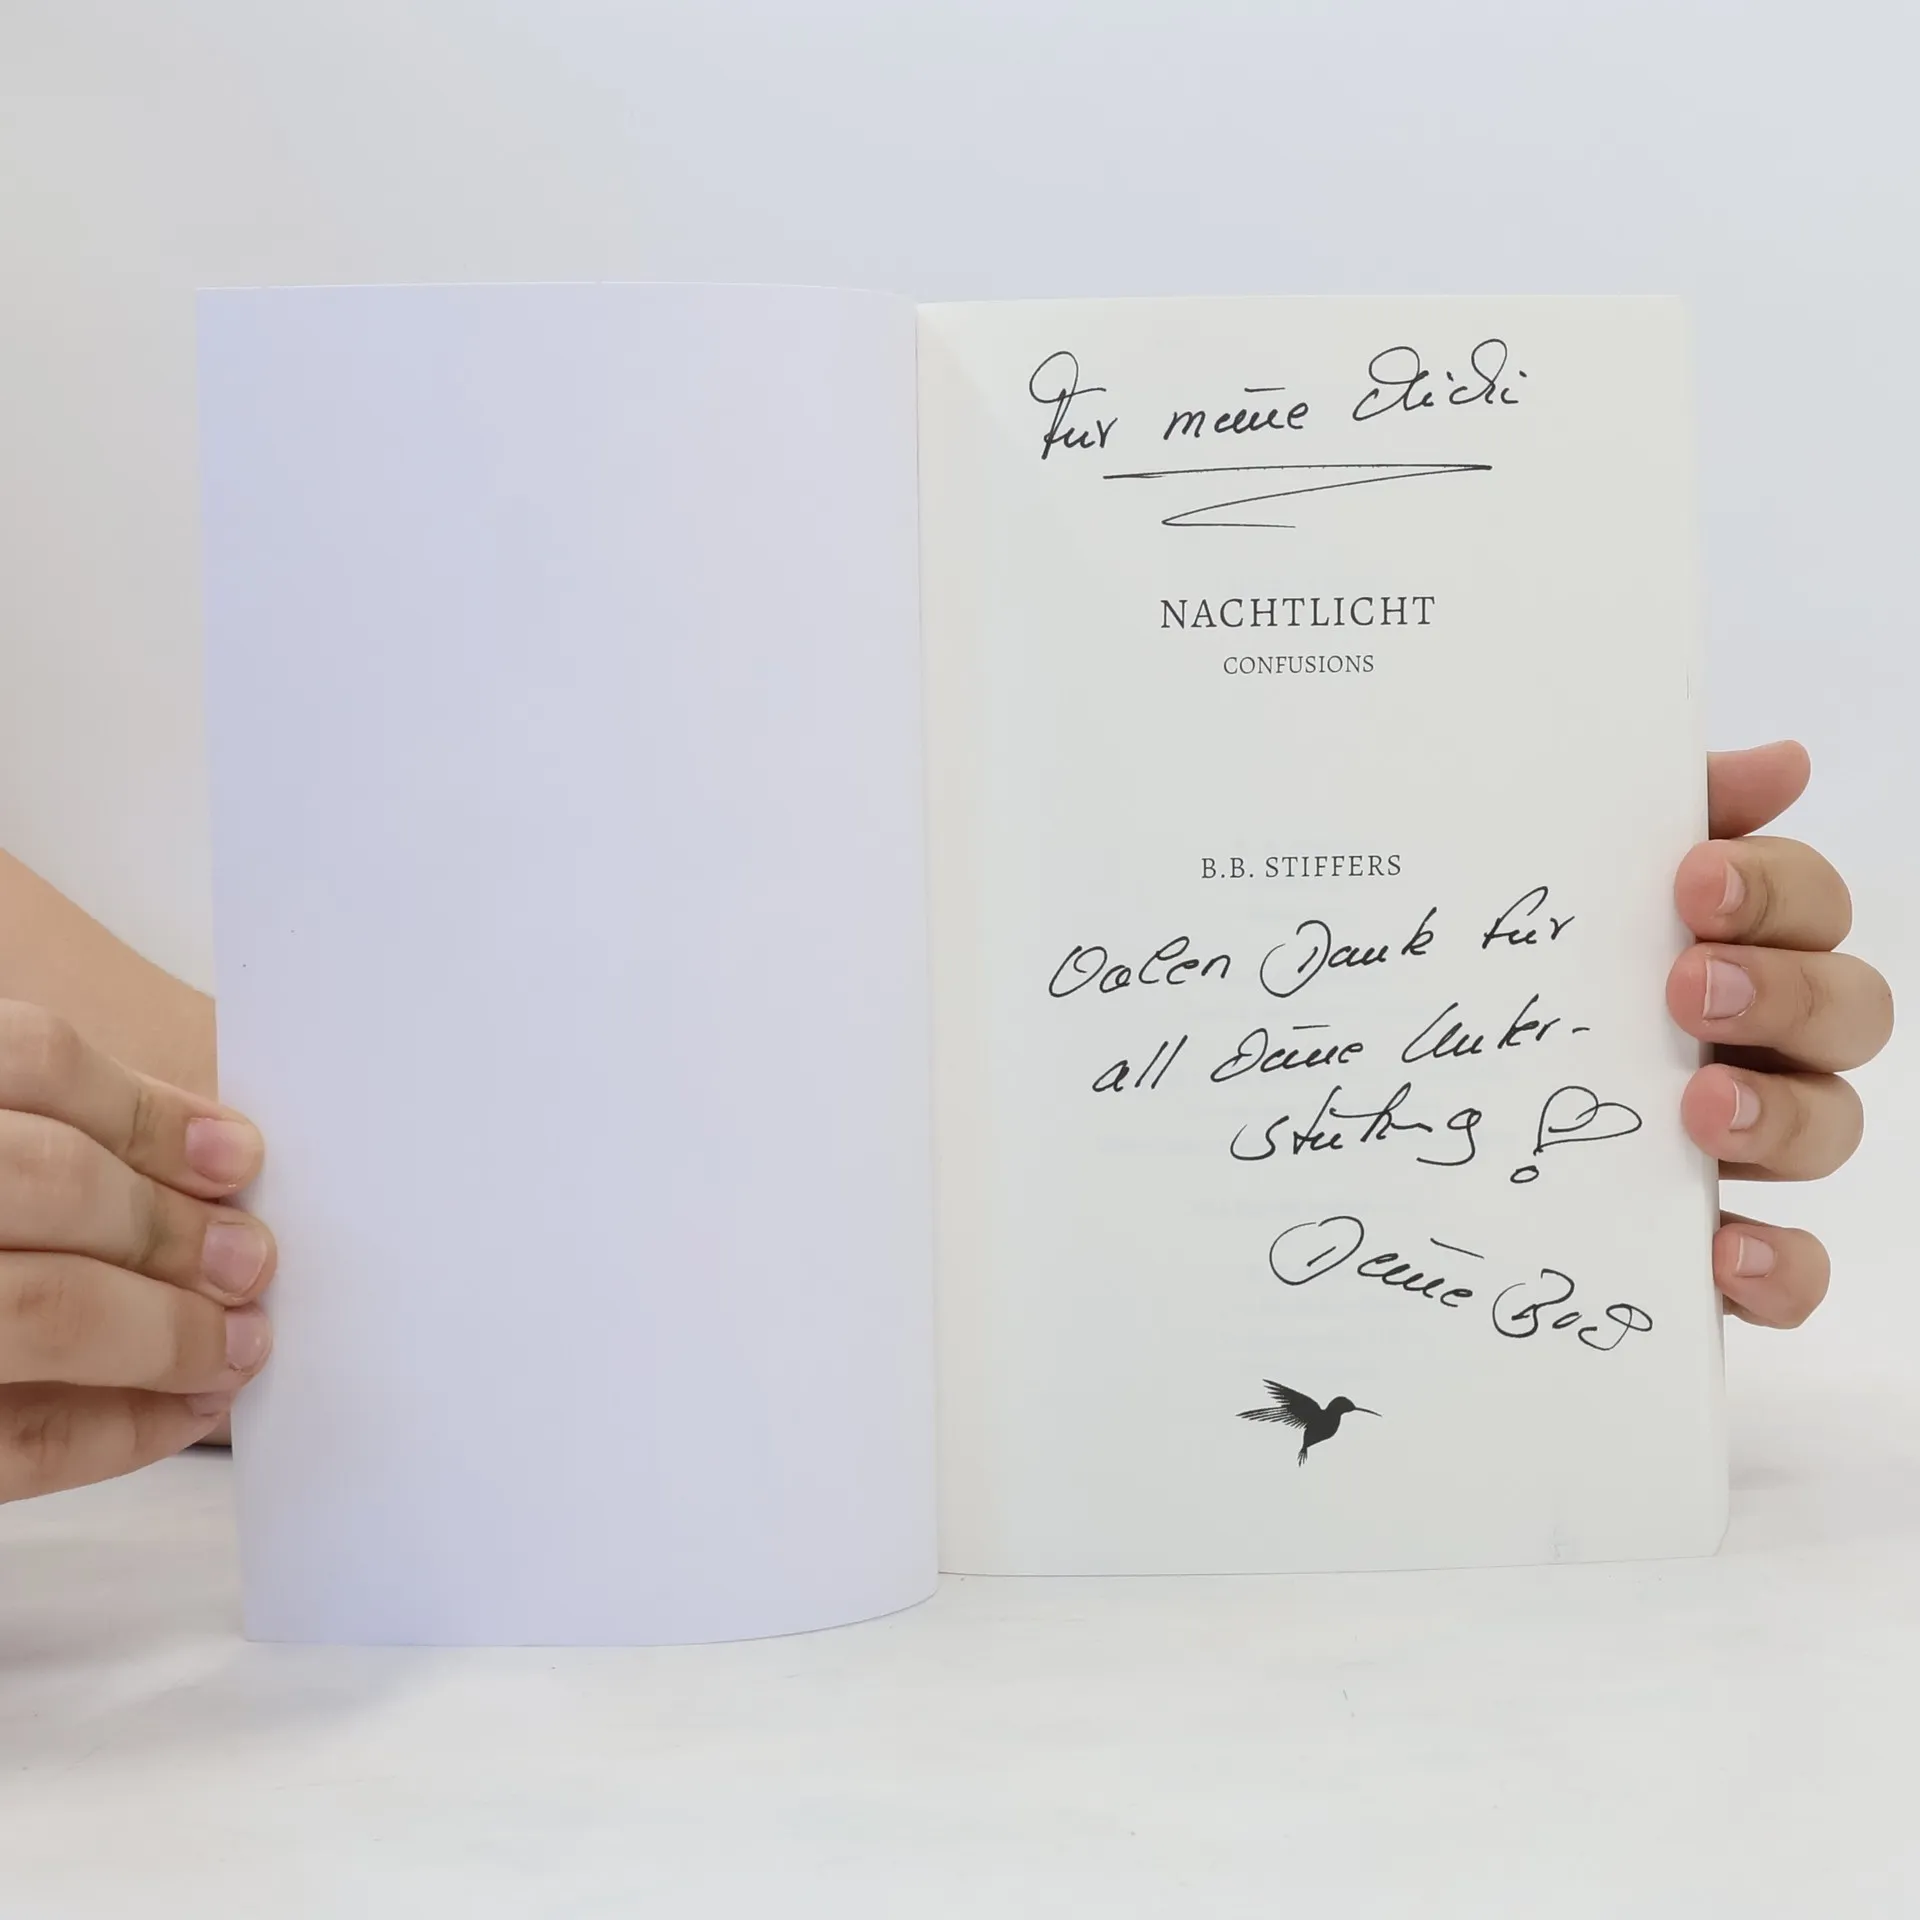 Für meine
NACHTLICHT
CONFUSIONS
B.B. STIFFERS
Vielen Dank für
all Deine Unter-
stützung
Deine